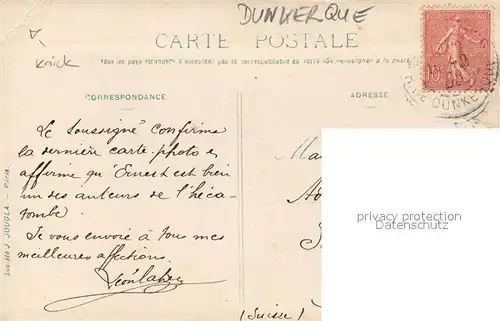 DUNKERQUE
CARTE POSTALE
Knick
Tous les pays étrangers n'acceptent pas la correspondance au verso (Se renseigner à la poste)
CORRESPONDANCE
ADRESSE
10
Le soussigné confirme
la dernière carte-photo &
affirme qu'Ernest est bien
un des auteurs de l'héca-
tombe.
Je vous envoie à tous mes
meilleures affections.
Société J. JOUGLA — Paris.
Ma
(Suisse)
privacy protection
Datenschutz